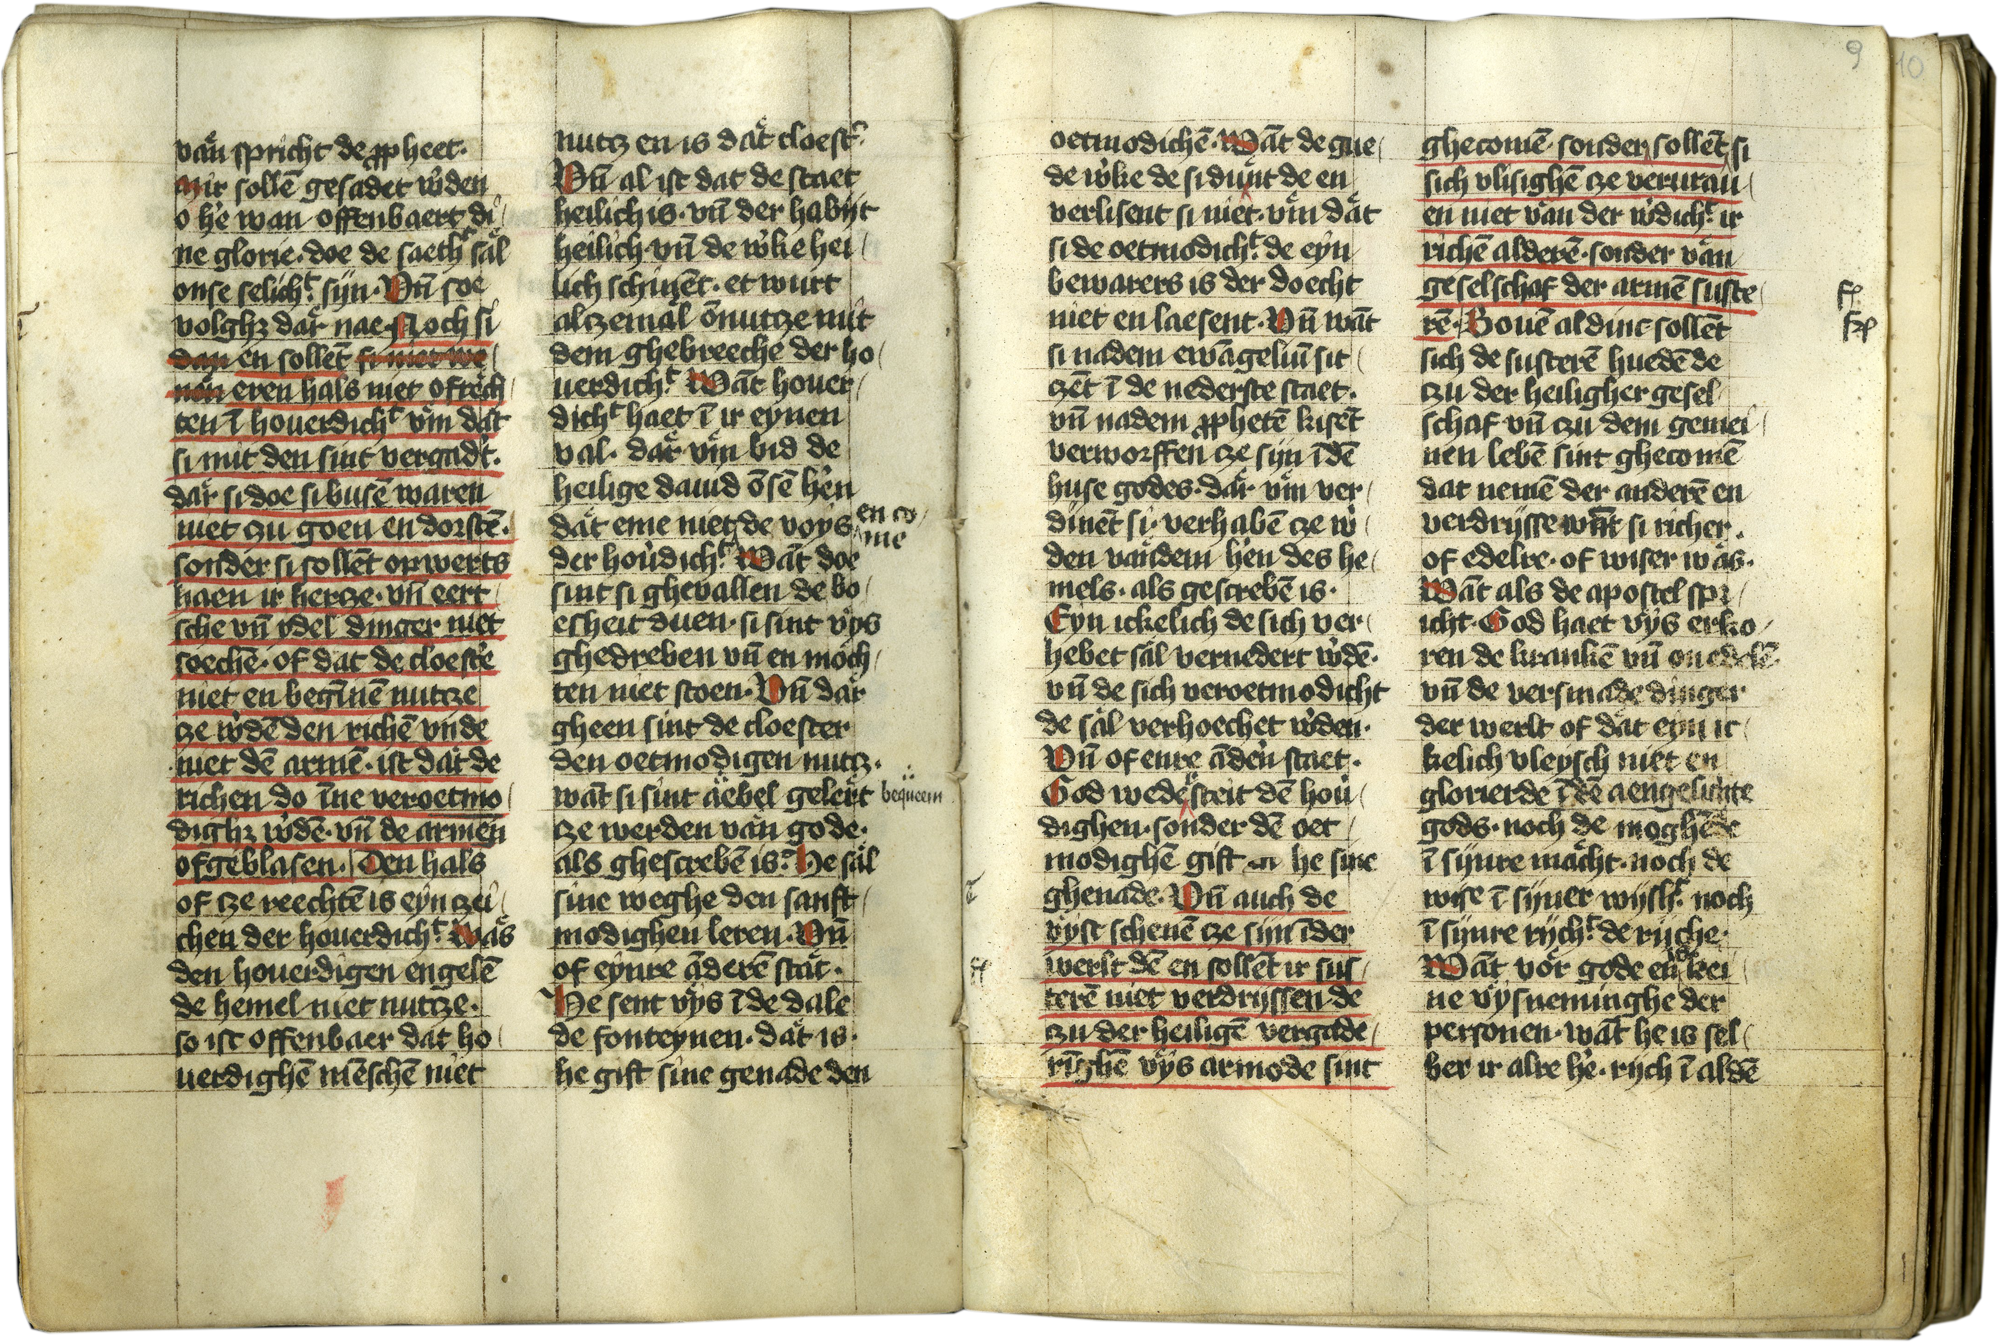 van spricht de ꝓpheet·
Wir sollē gesadet w'den
o he wan offenbaert di
ne glorie· doe de saeth͛ sal
onse selich͛t sijn· Vn̄ soe
volghꝫ dar nae· Noch si
dan en sollēt si niet we
nen eren hals niet ofrech
ten ī houerdich͛t vm̄ dat
si mit den sint vergad't·
dar si doe si busē waren
niet zu goen en dorstē·
sonder si sollēt opwerts
haen ir hertze· vn̄ eert
sche vn̄ ydel dinger niet
soechē· of dat de cloest'e
niet en begīnē nutze
ze w'dē den richē vnde
niet dē armē· ist dat de
richen do īne veroetmo
dighꝫ w'dē· vn̄ de armen
ofgeblasen· Den hals
of ze reechtē is eyn zei
chen der houerdich͛t Was
den houerdigen engelē
de hemel niet nutze·
so ist offenbaer dat ho
uerdighē mēschē niet
nutz en is dat cloest'
Vn̄ al ist dat de staet
heilich is· vn̄ der habijt
heilich· vn̄ de w'ke hei
lich schinēt· et wurt
alzemal ōnutze mit
dem ghebreeche der ho
uerdich͛t Wāt houer
dich͛t haet ī ir eynen
val· dar vm̄ bid de
heilige dauid ōsē h'en
dat eme niet de voys en co
me
der hou'dich͛t Wāt doe
sint si ghevallen de bo
esheit duen· si sint vys
ghedreben vn̄ en moch
ten niet stoen· Vn̄ dar
gheen sint de cloester
den oetmodigen nutz·
wāt si sint aebel geleert bequeem
ze werden van gode·
als ghescrebē is· He sal
sine weghe den sanft
modighen leren· Vn̄
of eynre āderē stat·
He sent vys ī de dale
de fonteynen· dat is·
he gift sine genade den
oetmodichē· Wāt de gue
de w'ke de si dunt de en
verlisent si niet· vm̄ dat
si de oetmodich͛t· de eyn
bewarers is der doecht
niet en laesent· Vn̄ wāt
si nadem ewāgeliū sit
zēt ī de nederste staet·
vn̄ nadem ꝓphetē kisēt
verworffen ze sijn ī dē
huse godes· dar vm̄ ver
dinēt si· verhabē ze w'
den vandem h'en des he
mels· als gescrebē is·
Eyn ickelich de sich ver
hebet sal vernedert w'dē·
vn̄ de sich veroetmodicht
de sal verhoechet w'den·
Vn̄ of enre ād'en staet·
God wed'steit dē hou'
dighen· sonder dē oet
modighē gift he sine
ghenade· Vn̄ auch de
vyst schenē ze sijn ī der
werlt dē en sollēt ir sus
terē niet verdrijssen de
zu der heiligē vergade
rīghē vys armode sint
9
10
ghecomē· sonder sollēt si
sich vlisighē ze verurau
en niet van der w'dich͛t ir
richē alderē· sonder van
geselschaf der armē suste
rē· Bouē al dinc sollēt
sich de susterē huedē de
zu der heiligher gesel
schaf vn̄ zu dem gemei
nen lebē sint ghecomē
dat nemē der anderē en
verdrijsse wāt si richer·
of edelre· of wiser was·
Wāt als de apostel spr
icht· God haet vys erko
ren de krankē vn̄ onedelē
vn̄ de versmade dinger
der werlt of dat eyn ic
kelich vleysch niet en
glorierde ī dē aengesichte
gods· noch de moghēde
ī sijnre macht· noch de
wise ī sijner wijsh͛t· noch
ī sijnre rijch͛t de rijche·
Wāt vor gode en is kei
ne vysneminghe der
personen· wāt he is sel
ber ir alre h'e· rijch ī aldē